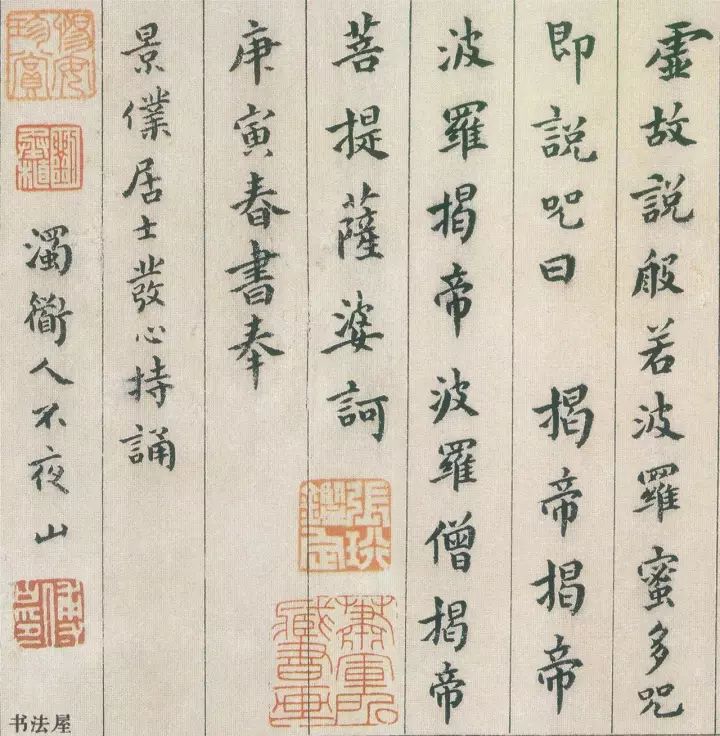 虛故說般若波羅蜜多咒
即說咒曰 揭帝揭帝
波羅揭帝波羅僧揭帝
菩提薩婆訶
庚寅春書奉
景僕居士發心持誦
濁衟人不夜山
书法屋